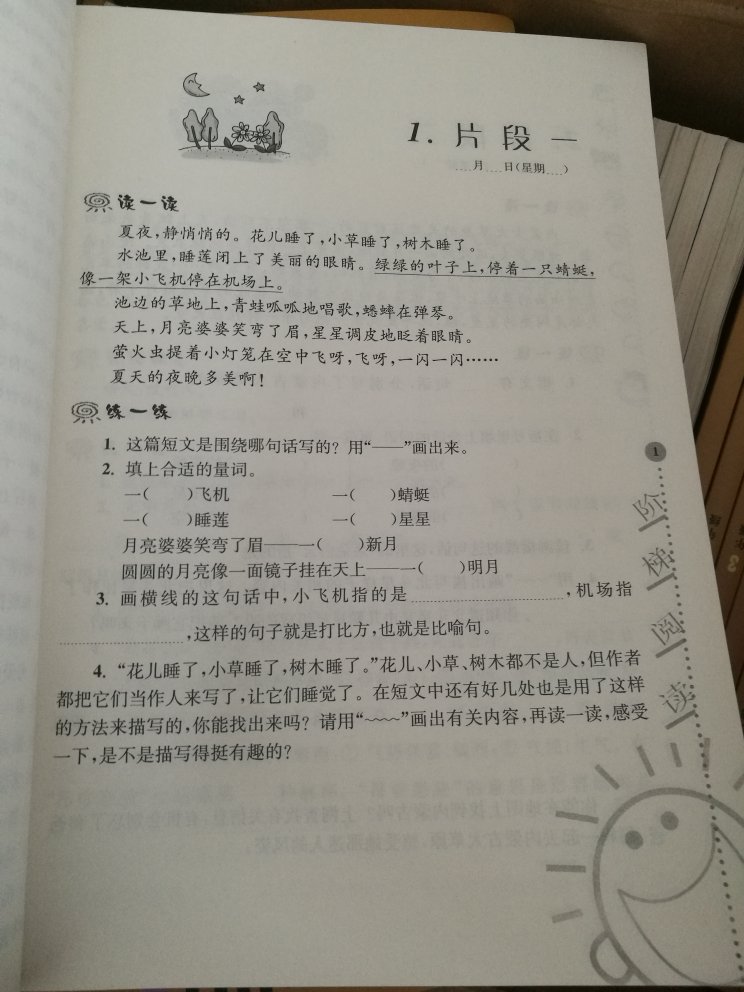 1. 片段一
月 日(星期 )
读一读
夏夜,静悄悄的。花儿睡了,小草睡了,树木睡了。
水池里,睡莲闭上了美丽的眼睛。绿绿的叶子上,停着一只蜻蜓,
像一架小飞机停在机场上。
池边的草地上,青蛙呱呱地唱歌,蟋蟀在弹琴。
天上,月亮婆婆笑弯了眉,星星调皮地眨着眼睛。
萤火虫提着小灯笼在空中飞呀,飞呀,一闪一闪……
夏天的夜晚多美啊!
练一练
1. 这篇短文是围绕哪句话写的?用“——”画出来。
2. 填上合适的量词。
一( )飞机 一( )蜻蜓
一( )睡莲 一( )星星
月亮婆婆笑弯了眉——一( )新月
圆圆的月亮像一面镜子挂在天上——一( )明月
3. 画横线的这句话中,小飞机指的是 ,机场指
,这样的句子就是打比方,也就是比喻句。
4. “花儿睡了,小草睡了,树木睡了。”花儿、小草、树木都不是人,但作者
都把它们当作人来写了,让它们睡觉了。在短文中还有好几处也是用了这样
的方法来描写的,你能找出来吗?请用“﹏﹏”画出有关内容,再读一读,感受
一下,是不是描写得挺有趣的?
1
阶梯阅读